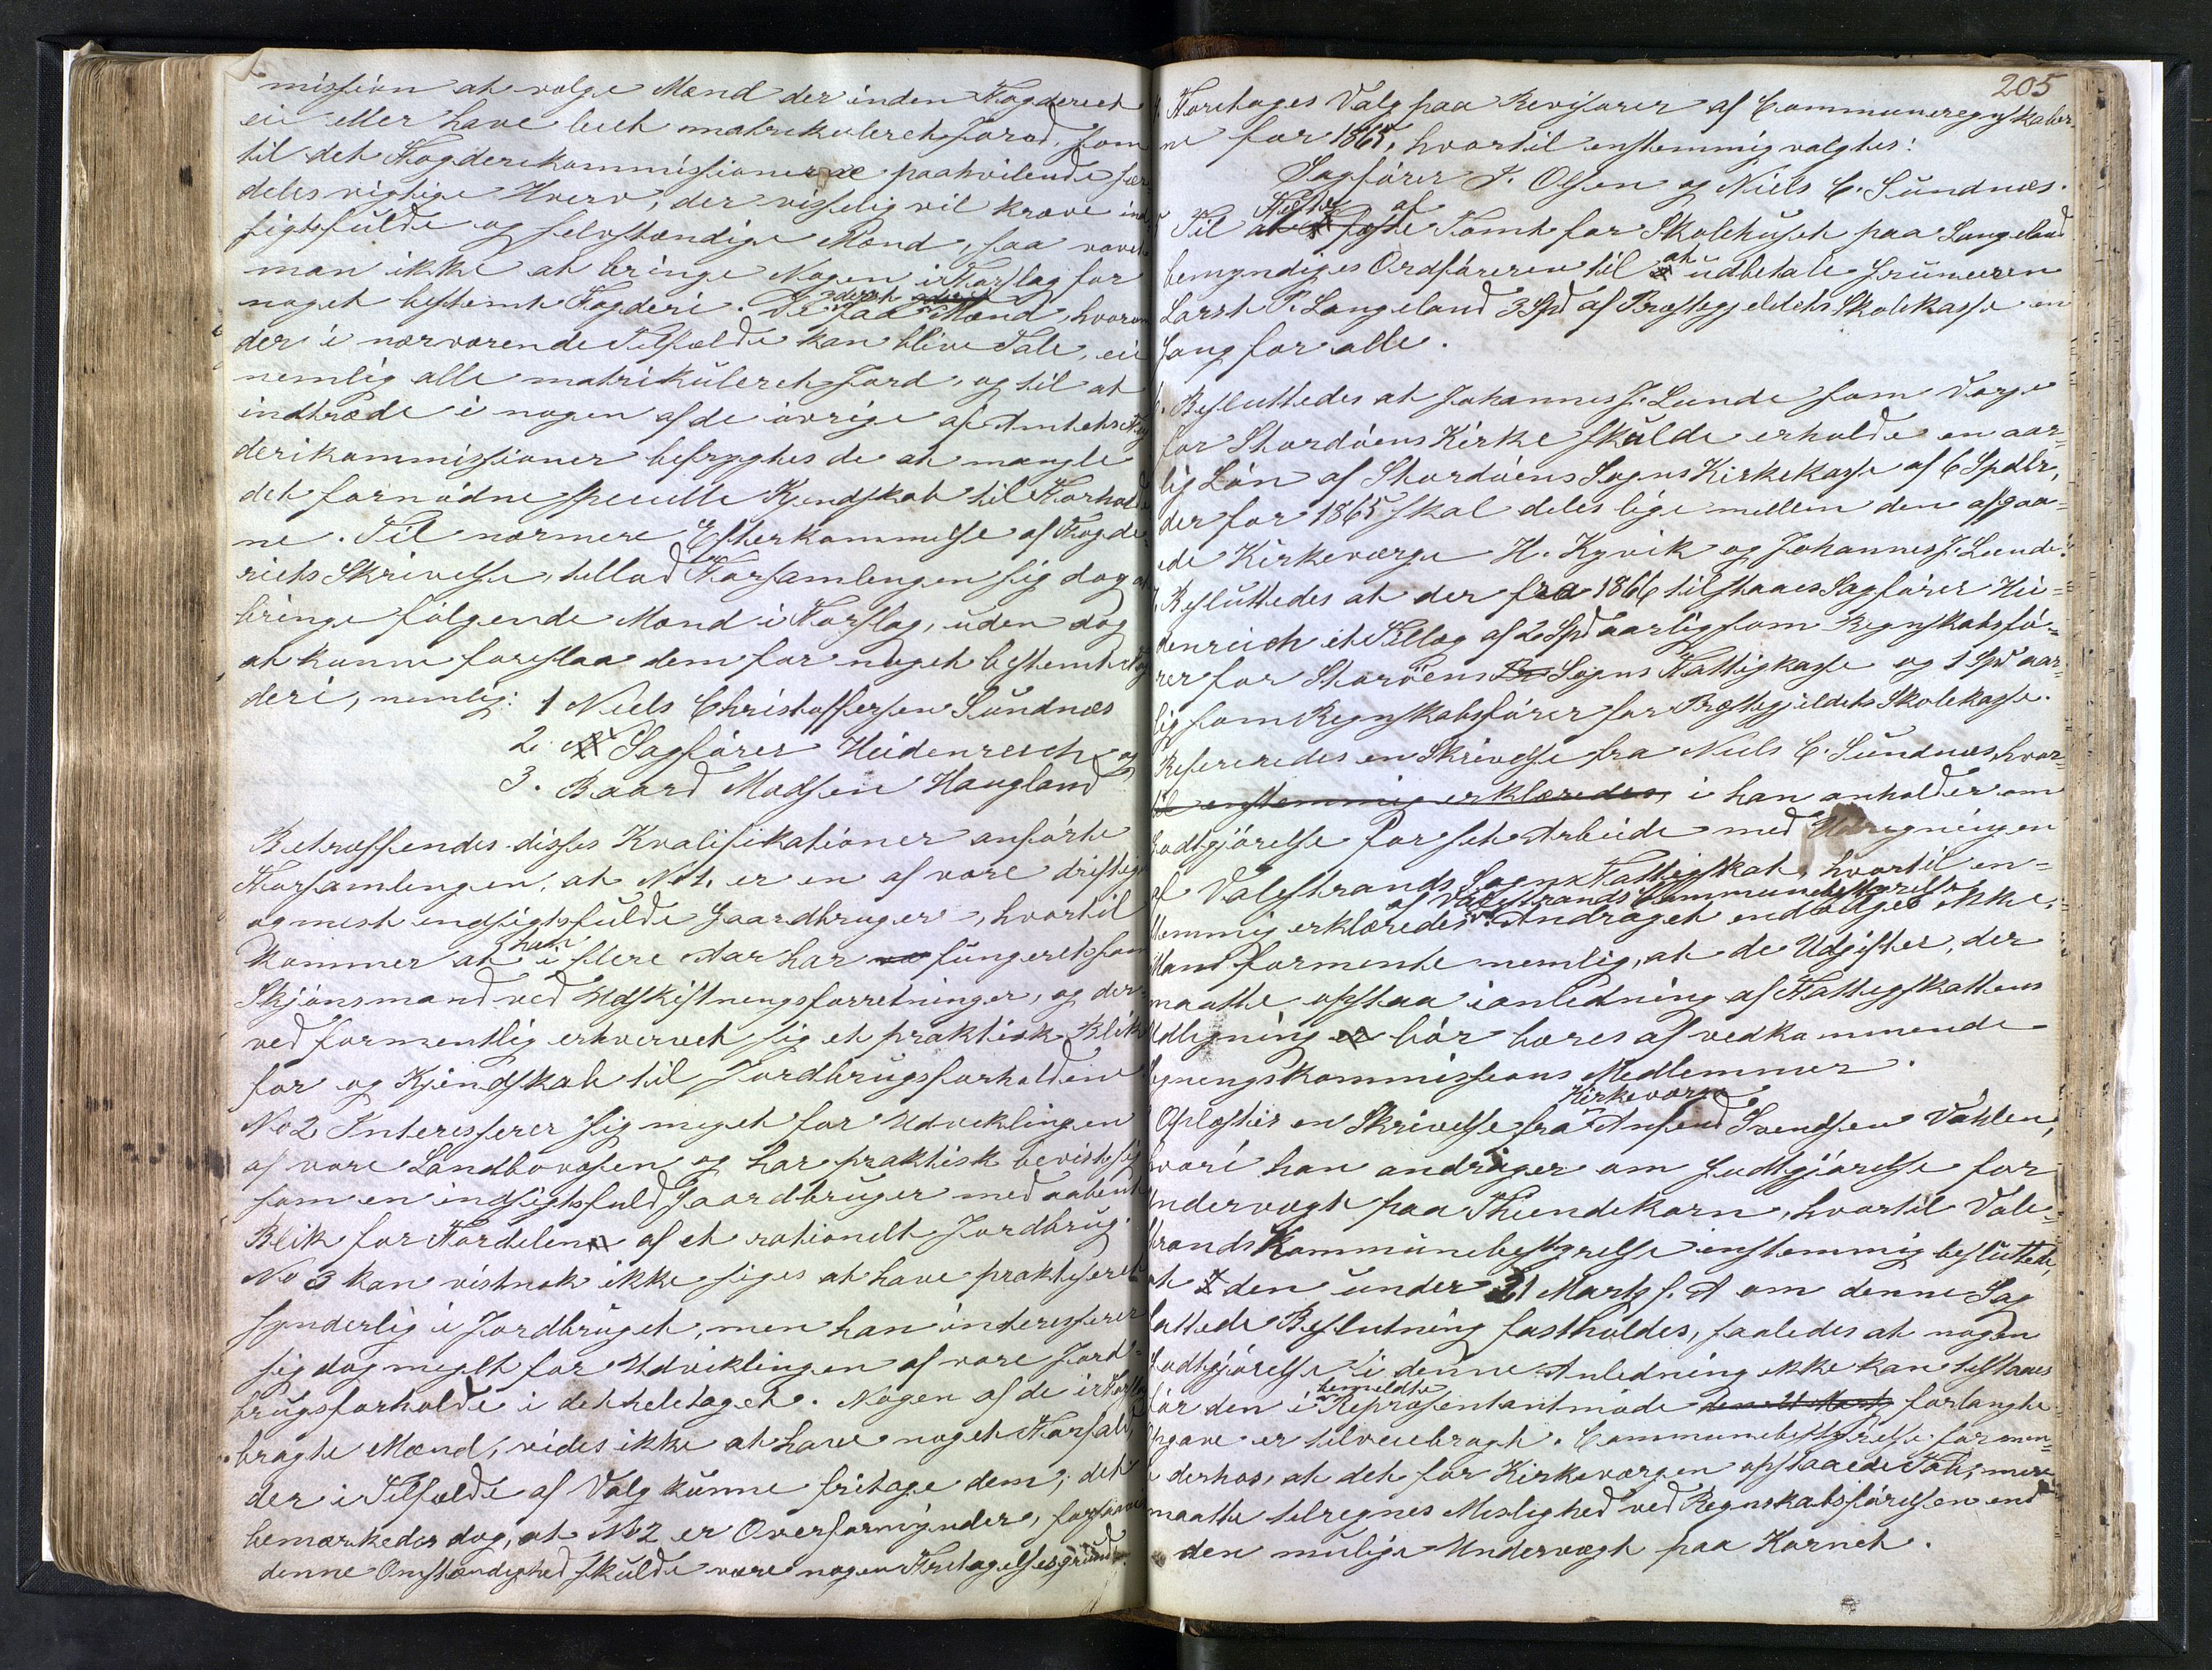 mission at vælge Mænd der inden Fogderiet
eie eller have leiet matrikuleret Jord, som
til det Fogderikommissionerne paahvilende sær-
deles vigtige Hverv, der visselig vil kræve ind-
sigtsfulde og selvstændige Mænd, saa vover
man ikke at bringe Nogen i Forslag for
noget bestemt Fogderi. De faa Mænd, hvorom
der i nærværende Tilfælde kan blive Tale, eie
nemlig alle matrikuleret Jord, og til at
indtræde i nogen af de øvrige af Amtets Fog-
derikommissioner befrygtes de at mangle
det fornødne specielle Kjendskab til Forholde
ne. Til nærmere Efterkommelse af Fogde-
riets Skrivelse, tillod Forsamlingen sig dog at
bringe følgende Mænd i Forslag, uden dog
at kunne foreslaa dem for noget bestemt Fog
deri, nemlig: 1 Niels Christoffersen Sundnæs
2. Sagfører Heidenreich og
3. Baard Madsen Haugland
Betræffendes disses Kvalifikationer anførte
Forsamlingen, at No 1. er en af vore driftige
og mest indsigtsfulde Gaardbruger, hvortil
kommer at han i flere Aar har fungeret som
Skjønsmand ved Udskiftningsforretninger, og der-
ved formentlig erhvervet sig et praktisk Blik
for og Kjendskab til Jordbrugsforholdene
No 2 Interesserer sig meget for Udviklingen
af vore Landbovæsen og har praktisk bevist sig
som en indsigtsfuld Gaardbruger med aabent
Blik for Fordelen af et rationelt Jordbrug.
No 3 kan vistnok ikke siges at have praktiseret
synderlig i Jordbruget, men han interesserer
sig dog meget for Udviklingen af vore Jord-
brugsforholde i det heletaget. Nogen af de i Forslag
bragte Mænd, vides ikke at have noget Forfald,
der i Tilfælde af Valg kunne fritage dem; det
bemærkedes dog, at No 2 er Overformynder, forsaavidt
denne Omstændighed skulde være nogen Fritagelsesgrund.
205
Foretoges Valg paa Revisorer af Communeregnskaber-
ne for 1865, hvortil enstemmig valgtes:
Sagfører J. Olsen og Niels C. Sundnæs.
Til Fæste af Tomt for Skolehuset paa Langeland
bemyndiges Ordføreren til at udbetale Grundeieren
Larst P. Langeland 3 Spd af Præstegjeldets Skolekasse en
Gang for alle.
Besluttedes at Johannes J. Lunde som Værge
for Stordøens Kirke skulde erholde en aar-
lig Løn af Stordøens Sogns Kirkekasse af 6 Spdlr,
der for 1865 skal deles lige mellem den afgaa-
ede Kirkeværge H. Kyvik og Johannes J. Lunde.
Besluttedes at der fra 1866 tilstaaes Sagfører Hei-
denreich et Tillæg af 2 Spd aarlig som Regnskabsfø-
rer for Stordøens Sogns Fattigkasse og 1 Spd aar-
lig som Regnskabsfører for Præstegjeldets Skolekasse.
Refereredes en Skrivelse fra Niels C. Sundnæs hvor-
til enstemmig erklæredes, i han anholder om
Godtgjørelse for sit Arbeide med Udregningen
af Valestrands Sogns Fattigskat, hvortil en-
af Valestrands Communebestyrelse
stemmig erklæredes: Andraget indvilges ikke;
Man formente nemlig, at de Udgifter, der
maatte opstaa i anledning af Fattigskattens
Udligning bør bæres af vedkommende
Ligningskommissions Medlemmer.
Kirkeværge
Oplæstes en Skrivelse fra Ansend Svendsen Våhlen,
hvori han andrager om Godtgjørelse for
Undervægt paa Tiendekorn, hvortil Vale-
strands Kommunebestyrelse enstemmig besluttede,
at den under 21 Marts f. A om denne Sag
fattede Beslutning fastholdes, saaledes at nogen
Godtgjørelse i denne Anledning ikke kan tilstaaes
før den i bemeldte Repræsentantmøde den 21 Marts forlangte
Opgave er tilveiebragt. Communebestyrelse formen-
te derhos, at det for Kirkeværgen opstaaede Tab, mere
maatte tilregnes Mislighed ved Regnskabsførelsen end
den mulige Undervægt paa Kornet.